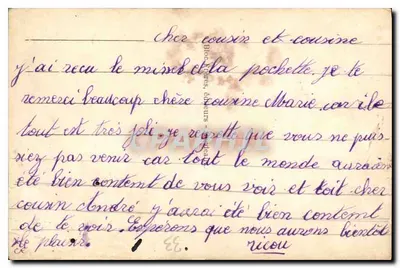 cher cousin et cousine
j'ai recu le missel et la pochette je te
remerci beaucoup chère cousine Marie car ile
tout est tres joli je regrette que vous ne puis
siez pas venir car tout le monde auraien
été bien content de vous voir et toit cher
cousin André j'aurai été bien content
de te voir. Esperons que nous aurons bientôt
le plaisir. ricou
33